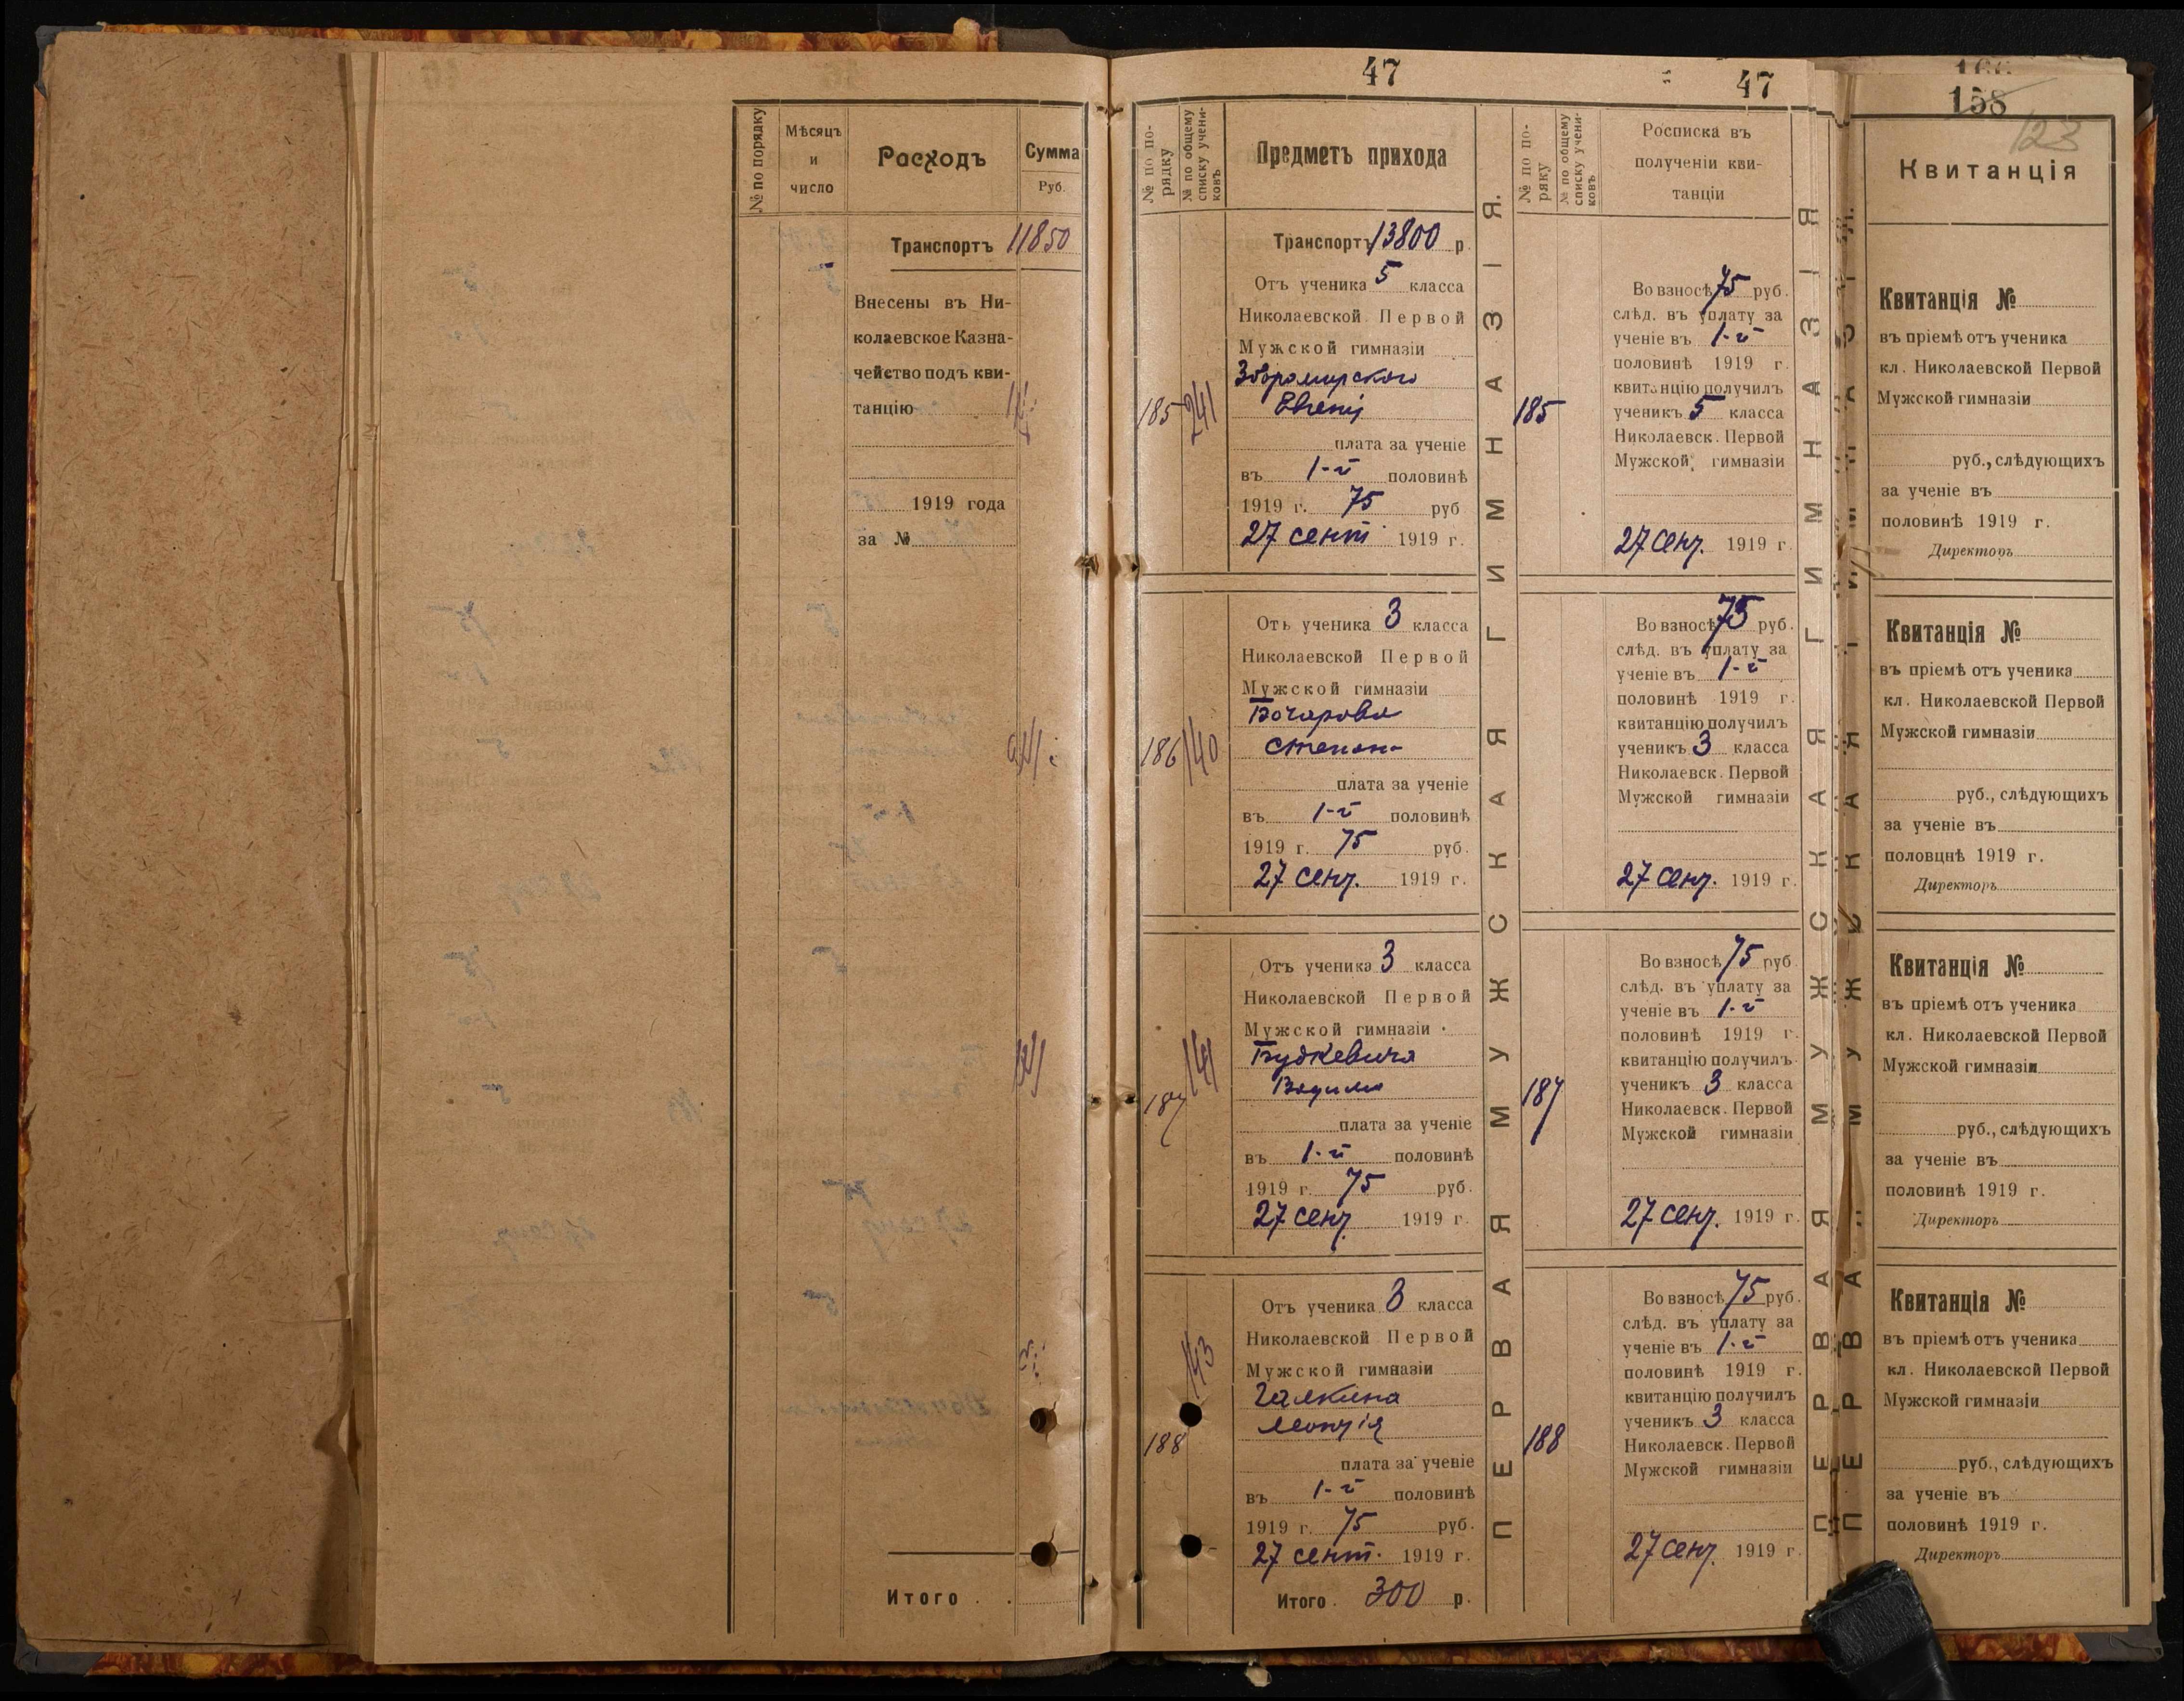 № по порядку
Мѣсяцъ
и
число
Расходъ
Сумма
Руб.
Транспортъ 11850
Внесены въ Ни-
колаевское Казна-
чейство подъ кви-
танцію
1919 года
за №
Итого . .
47
№ по по-
рядку
№ по общему
списку учени-
ковъ
Предметъ прихода
Транспортъ 13800 р.
Отъ ученика 5 класса
Николаевской Первой
Мужской гимназіи
Збромирского
Евгенія
185
241
плата за ученіе
въ 1-й половинѣ
1919 г. 75 руб
27 сент 1919 г.
Отъ ученика 3 класса
Николаевской Первой
Мужской гимназіи
Бочарова
Степана
186
140
плата за ученіе
въ 1-й половинѣ
1919 г. 75 руб.
27 сент. 1919 г.
Отъ ученика 3 класса
Николаевской Первой
Мужской гимназіи
Будкевича
Вадима
187
141
плата за ученіе
въ 1-й половинѣ
1919 г. 75 руб.
27 сент. 1919 г.
Отъ ученика 3 класса
Николаевской Первой
Мужской гимназіи
Галкина
188
143
плата за ученіе
въ 1-й половинѣ
1919 г. 75 руб.
27 сент. 1919 г.
Итого. 300 р.
ПЕРВАЯ МУЖСКАЯ ГИМНАЗІЯ.
47
№ по по-
ряку
№ по общему
списку учени-
ковъ
Росписка въ
полученіи кви-
танціи
Во взносѣ 75 руб.
слѣд. въ уплату за
ученіе въ 1-й
половинѣ 1919 г.
квитанцію получилъ
185
ученикъ 5 класса
Николаевск. Первой
Мужской гимназіи
27 сент. 1919 г.
Во взносѣ 75 руб.
слѣд. въ уплату за
ученіе въ 1-й
половинѣ 1919 г.
квитанцію получилъ
ученикъ 3 класса
Николаевск. Первой
Мужской гимназіи
27 сент. 1919 г.
Во взносѣ 75 руб
слѣд. въ уплату за
ученіе въ 1-й
половинѣ 1919 г.
квитанцію получилъ
187
ученикъ 3 класса
Николаевск. Первой
Мужской гимназіи
27 сент. 1919 г.
Во взносѣ 75 руб.
слѣд. въ уплату за
ученіе въ 1-й
половинѣ 1919 г.
квитанцію получилъ
ученикъ 3 класса
188
Николаевск. Первой
Мужской гимназіи
27 сент. 1919 г.
ПЕРВАЯ МУЖСКАЯ ГИМНАЗІЯ
158
123
Квитанція
Квитанція №
въ пріемѣ отъ ученика
кл. Николаевской Первой
Мужской гимназіи
руб., слѣдующихъ
за ученіе въ
половинѣ 1919 г.
Директоръ
Квитанція №
въ пріемѣ отъ ученика
кл. Николаевской Первой
Мужской гимназіи
руб., слѣдующихъ
за ученіе въ
половцнѣ 1919 г.
Директоръ
Квитанція №
въ пріемѣ отъ ученика
кл. Николаевской Первой
Мужской гимназіи
руб., слѣдующихъ
за ученіе въ
половинѣ 1919 г.
Директоръ
Квитанція №
въ пріемѣ отъ ученика
кл. Николаевской Первой
Мужской гимназіи
руб., слѣдующихъ
за ученіе въ
половинѣ 1919 г.
Директоръ